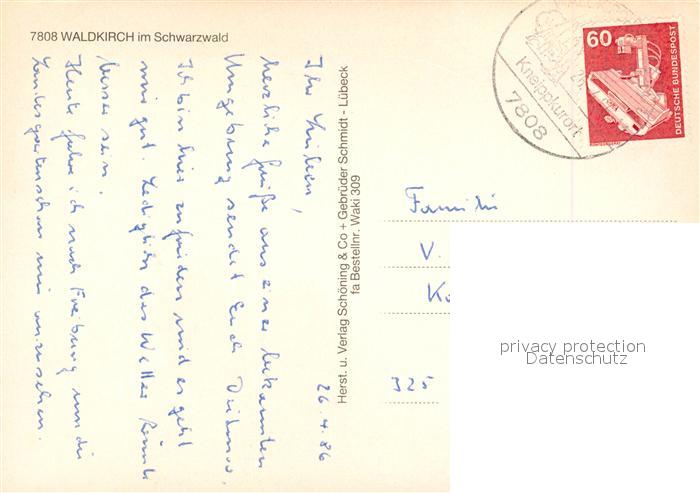 7808 WALDKIRCH im Schwarzwald
26.4.86
Ihr Lieben,
herzliche Grüße aus einer bekannten
Umgebung sendet Euch
Ich bin hier zufrieden und es geht
mir gut. Lediglich das Wetter könnte
besser sein.
Heute fahre ich nach Freiburg um die
Landesgartenschau mir anzusehen.
Herst. u. Verlag Schöning & Co + Gebrüder Schmidt - Lübeck
fa Bestellnr. Waki 309
Kneippkurort
7808
60
DEUTSCHE BUNDESPOST
Familie
V.
325
privacy protection
Datenschutz